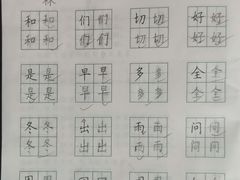 林
和和 们们 切切 好好
和和 们们 切切 好好
是是 早早 多多 全全
是是 早早 多多 全全
冬冬 出出 雨雨 问问
冬冬 出出 雨雨 问问